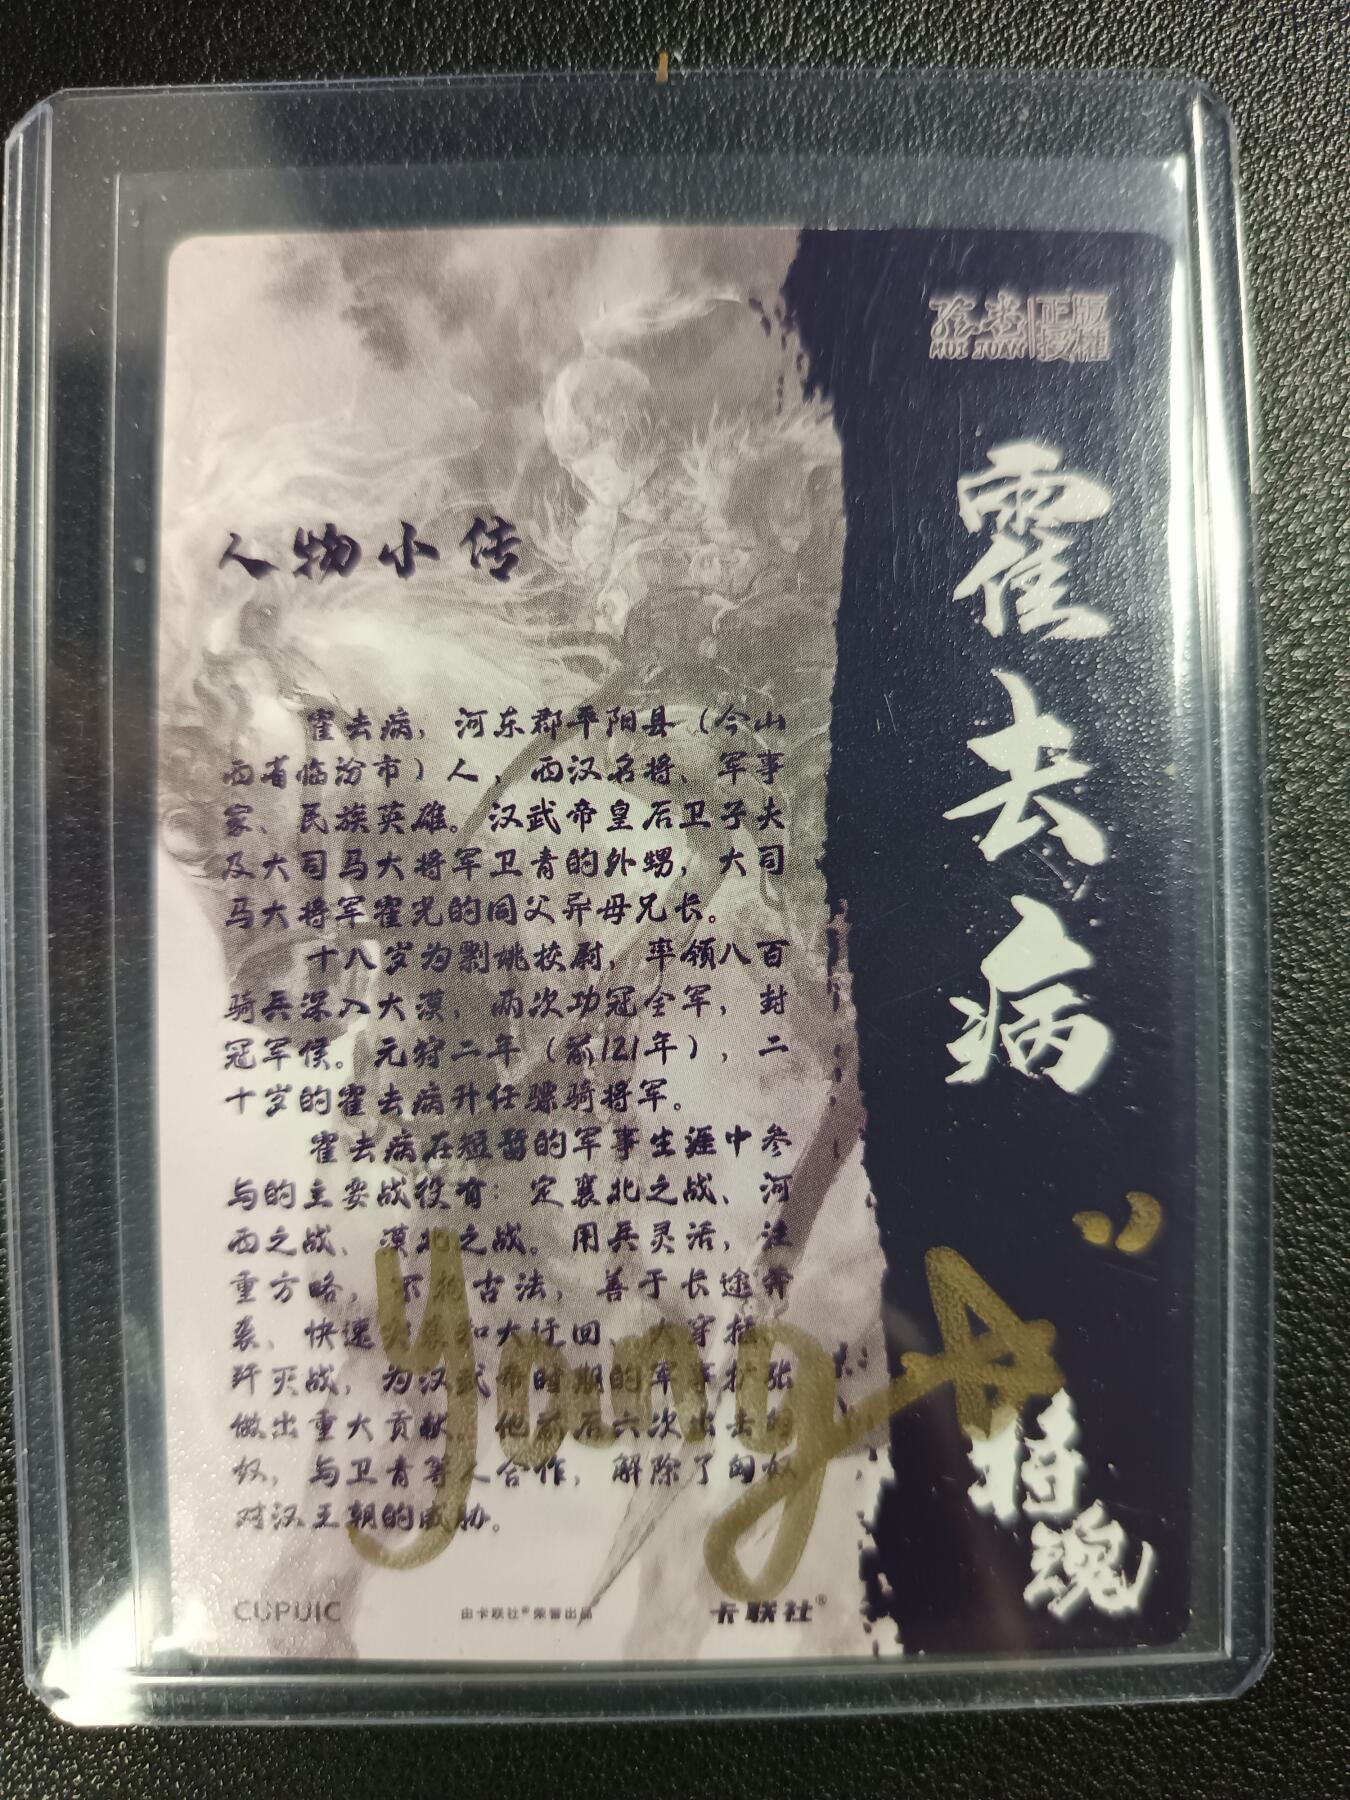 绘卷 正版授權
HUI JUAN
霍去病
将魂
人物小传
霍去病，河东郡平阳县（今山
西省临汾市）人，西汉名将、军事
家、民族英雄。汉武帝皇后卫子夫
及大司马大将军卫青的外甥，大司
马大将军霍光的同父异母兄长。
十八岁为剽姚校尉，率领八百
骑兵深入大漠，两次功冠全军，封
冠军侯。元狩二年（前121年），二
十岁的霍去病升任骠骑将军。
霍去病在短暂的军事生涯中参
与的主要战役有：定襄北之战、河
西之战、漠北之战。用兵灵活，注
重方略，不拘古法，善于长途奔
袭、快速突袭和大迂回、大穿插、
歼灭战，为汉武帝时期的军事扩张
做出重大贡献。他前后六次出击匈
奴，与卫青等人合作，解除了匈奴
对汉王朝的威胁。
yong
CUPUIC
由卡联社®荣誉出品
卡联社®